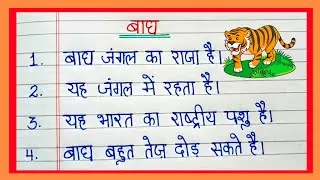 बाघ
1. बाघ जंगल का राजा है।
2. यह जंगल में रहता है।
3. यह भारत का राष्ट्रीय पशु है।
4. बाघ बहुत तेज़ दौड़ सकते है।